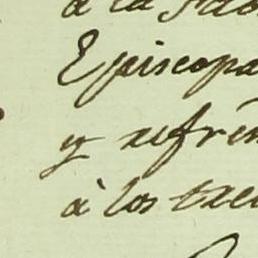 a la
Episcopa
y refren
à los trei